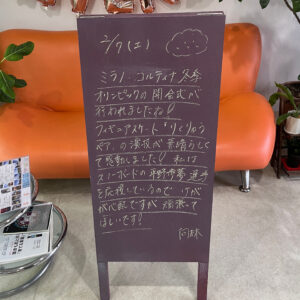 2/7(土)
ミラノ・コルティナ冬季
オリンピックの開会式が
行われましたね!
フィギュアスケート"りくりゅう
ペア"の演技が素晴らしく
て感動しました! 私は
スノーボードの平野歩夢選手
を応援しているので
心配ですが頑張って
ほしいです!